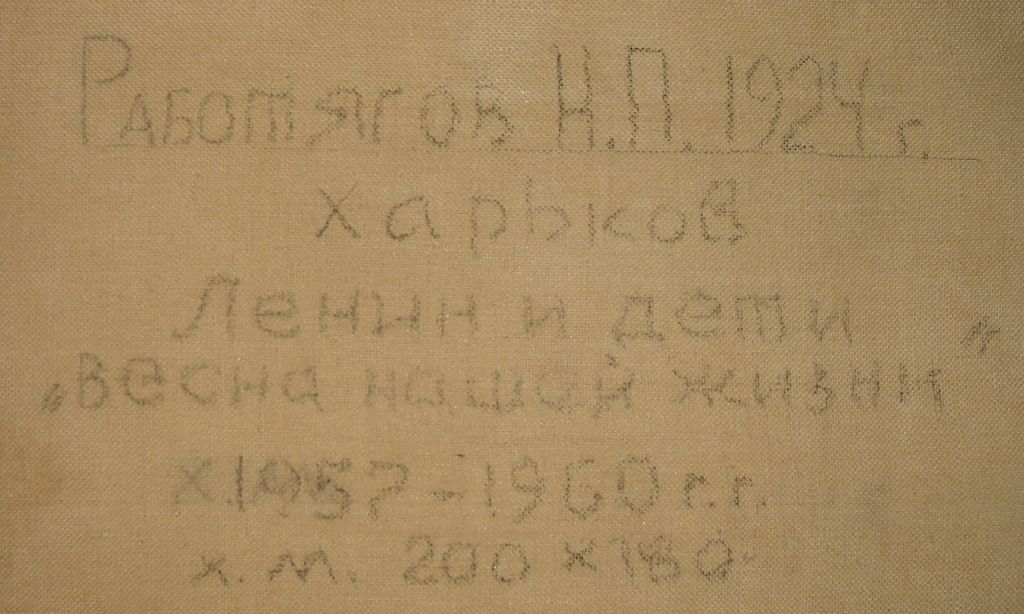 Работягов Н.П. 1924 г.
Харьков
Ленин и дети
„Весна нашей жизни"
х. 1957-1960 г.г.
х.м. 200 х 180